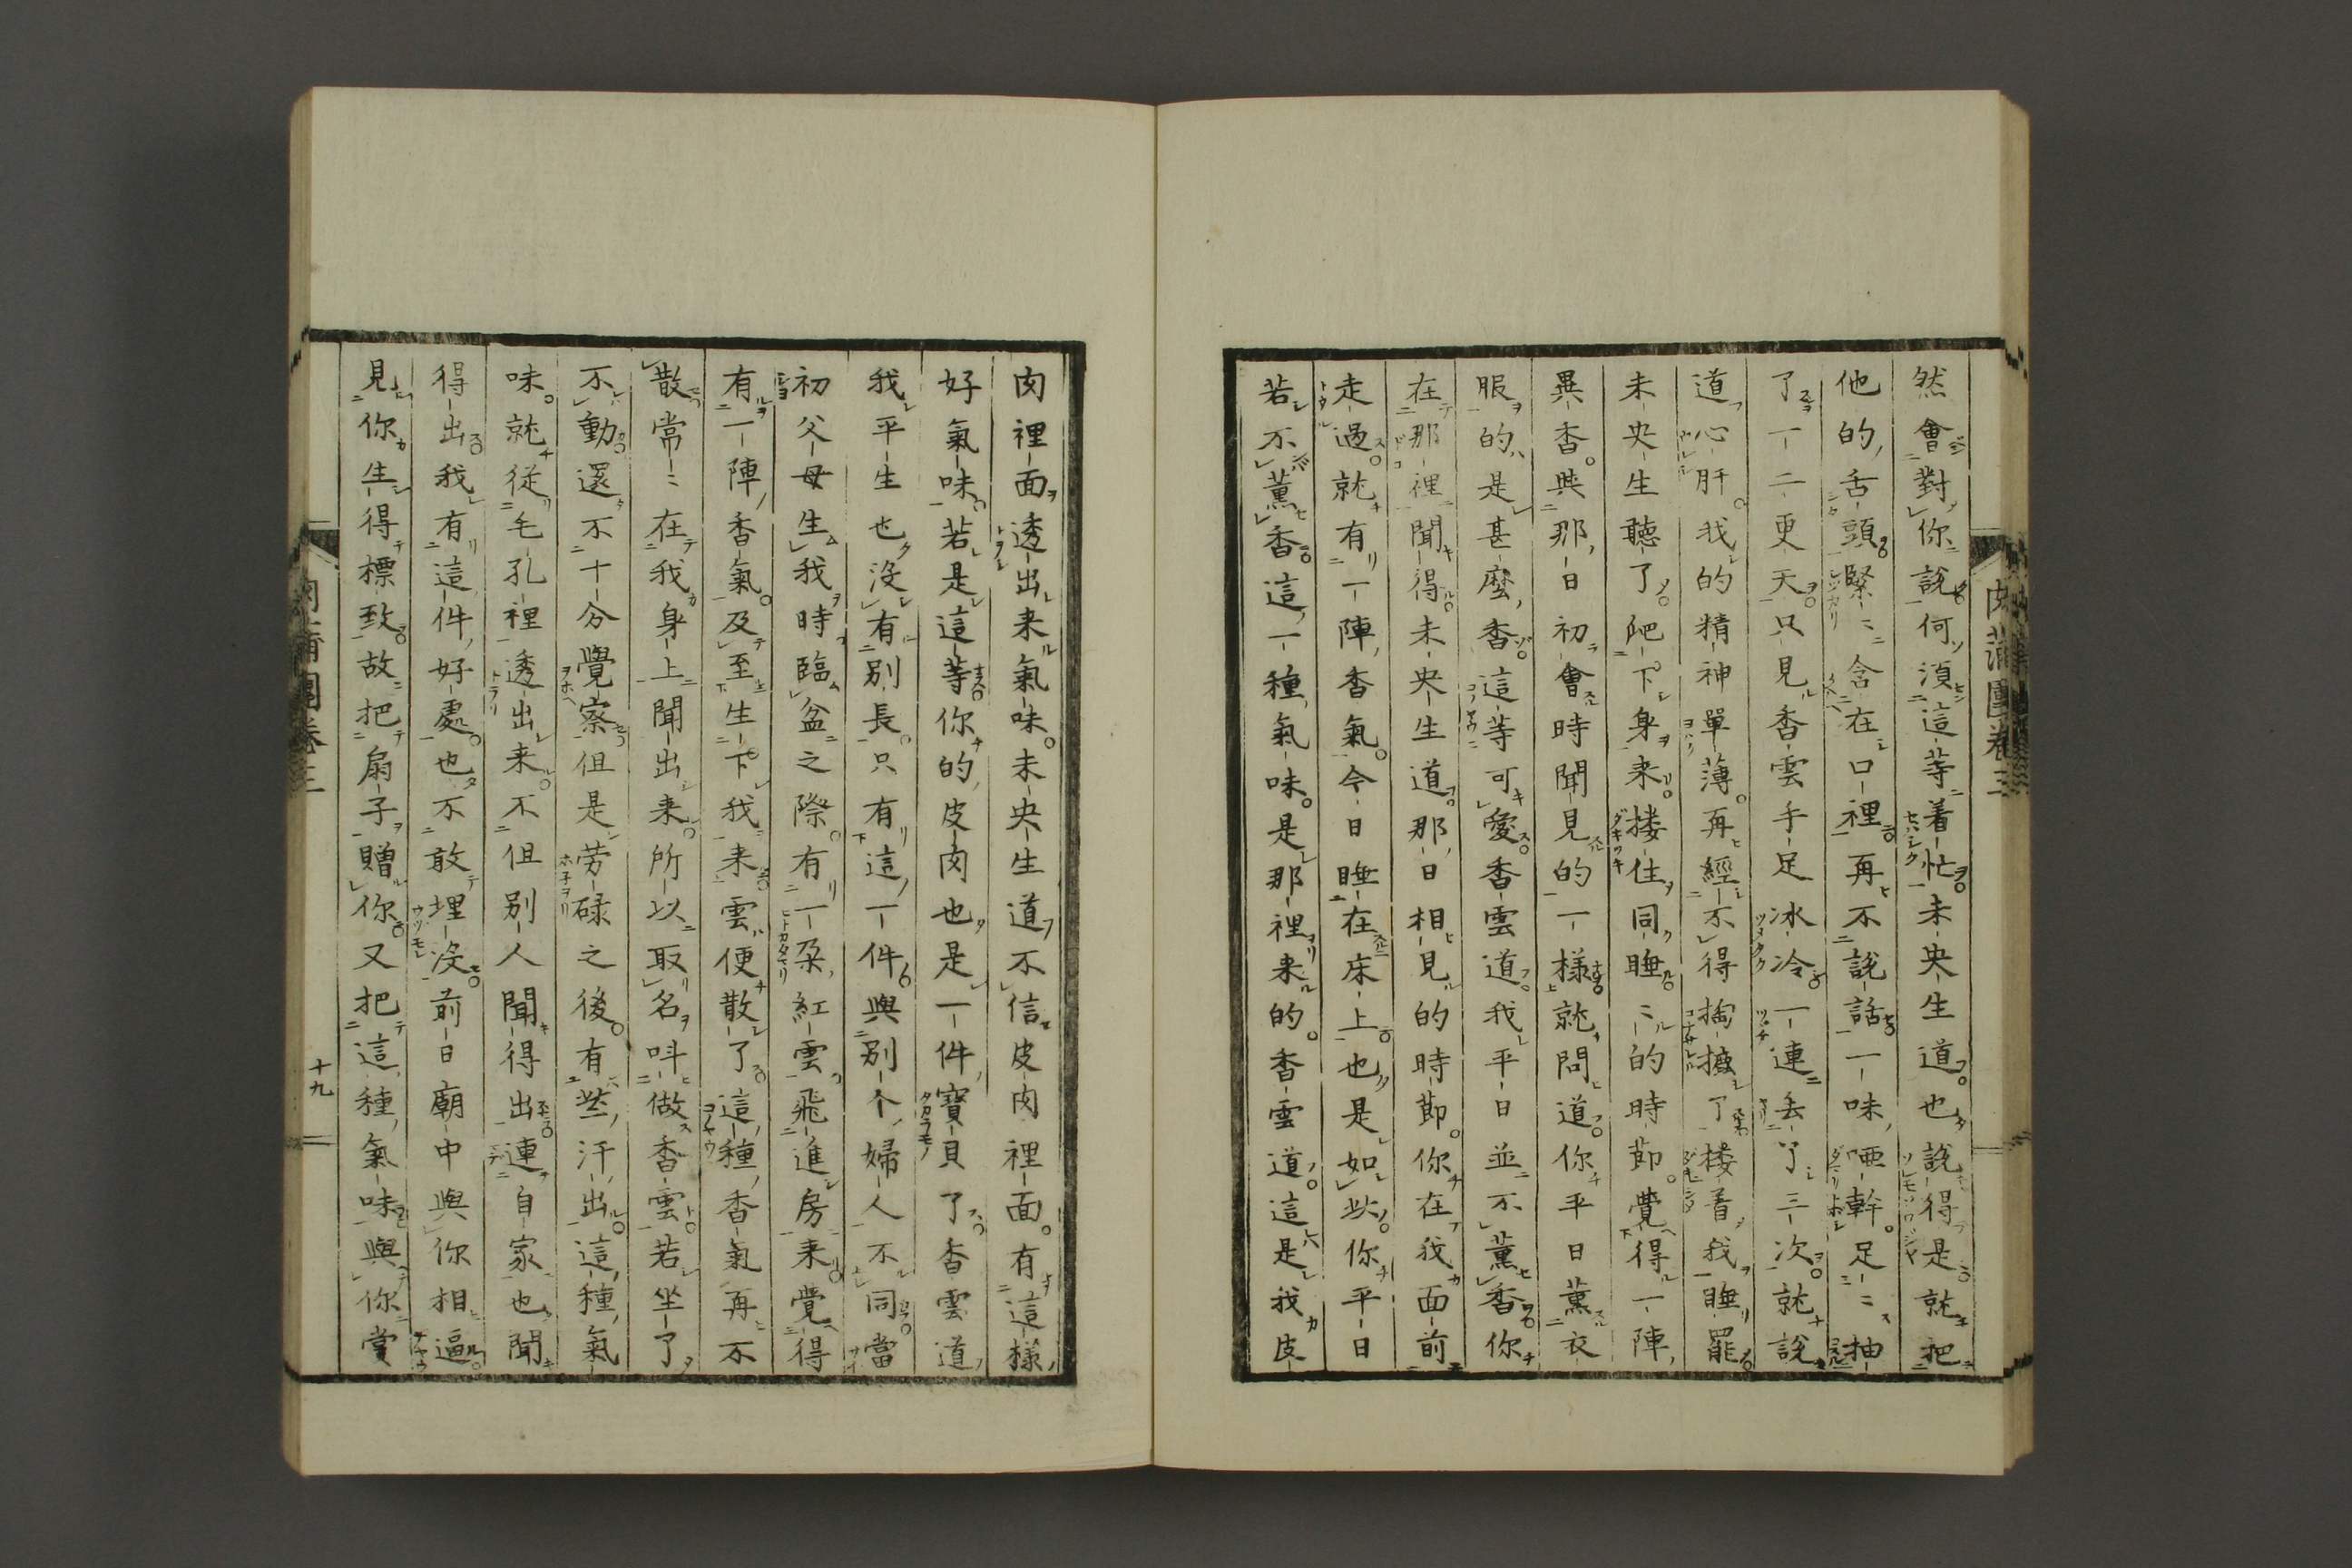 然會對你說何須這等着忙未央生道也說得是就把
他的舌頭緊〻含在口裡再不說話一味啞幹足〻抽
了一二更天只見香雲手足冰冷一連丢了三次就說
道心肝我的精神單薄再經不得搊搋了摟着我睡罷
未央生聽了爬下身来摟住同睡〻的時節覺得一陣
異香與那日初會時聞見的一樣就問道你平日薰衣
服的是甚麼香這等可愛香雲道我平日並不薰香你
在那裡聞得未央生道那日相見的時節你在我面前
走過就有一陣香氣今日睡在床上也是如此你平日
若不薰香這一種氣味是那裡来的香雲道這是我皮
肉蒲團卷三
肉裡面透出来氣味未央生道不信皮肉裡面有這樣
好氣味若是這等你的皮肉也是一件寶貝了香雲道
我平生也没有别長只有這一件與别个婦人不同當
初父母生我時臨盆之際有一朶紅雲飛進房来覺得
有一陣香氣及至生下我来雲便散了這種香氣再不
散常〻在我身上聞出来所以取名呌做香雲若坐了
不動還不十分覺察但是劳碌之後有些汗出這種氣
味就從毛孔裡透出来不但别人聞得出連自家也聞
得出我有這件好處也不敢埋没前日廟中與你相逼
見你生得標致故把扇子贈你又把這種氣味與你賞
肉蒲團卷三
十九